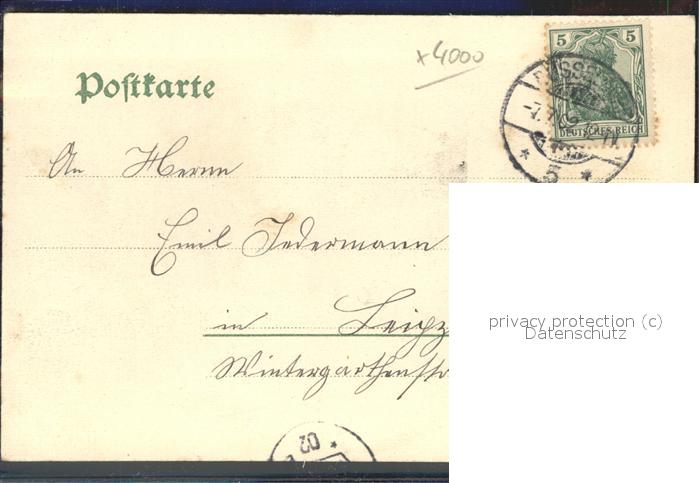 x4000
5 5
Postkarte
DÜSSEL
DEUTSCHES REICH
* 5 *
An Herrn
Emil Jedermann
in Leipz
Wintergarthenstr
privacy protection (c)
Datenschutz
02